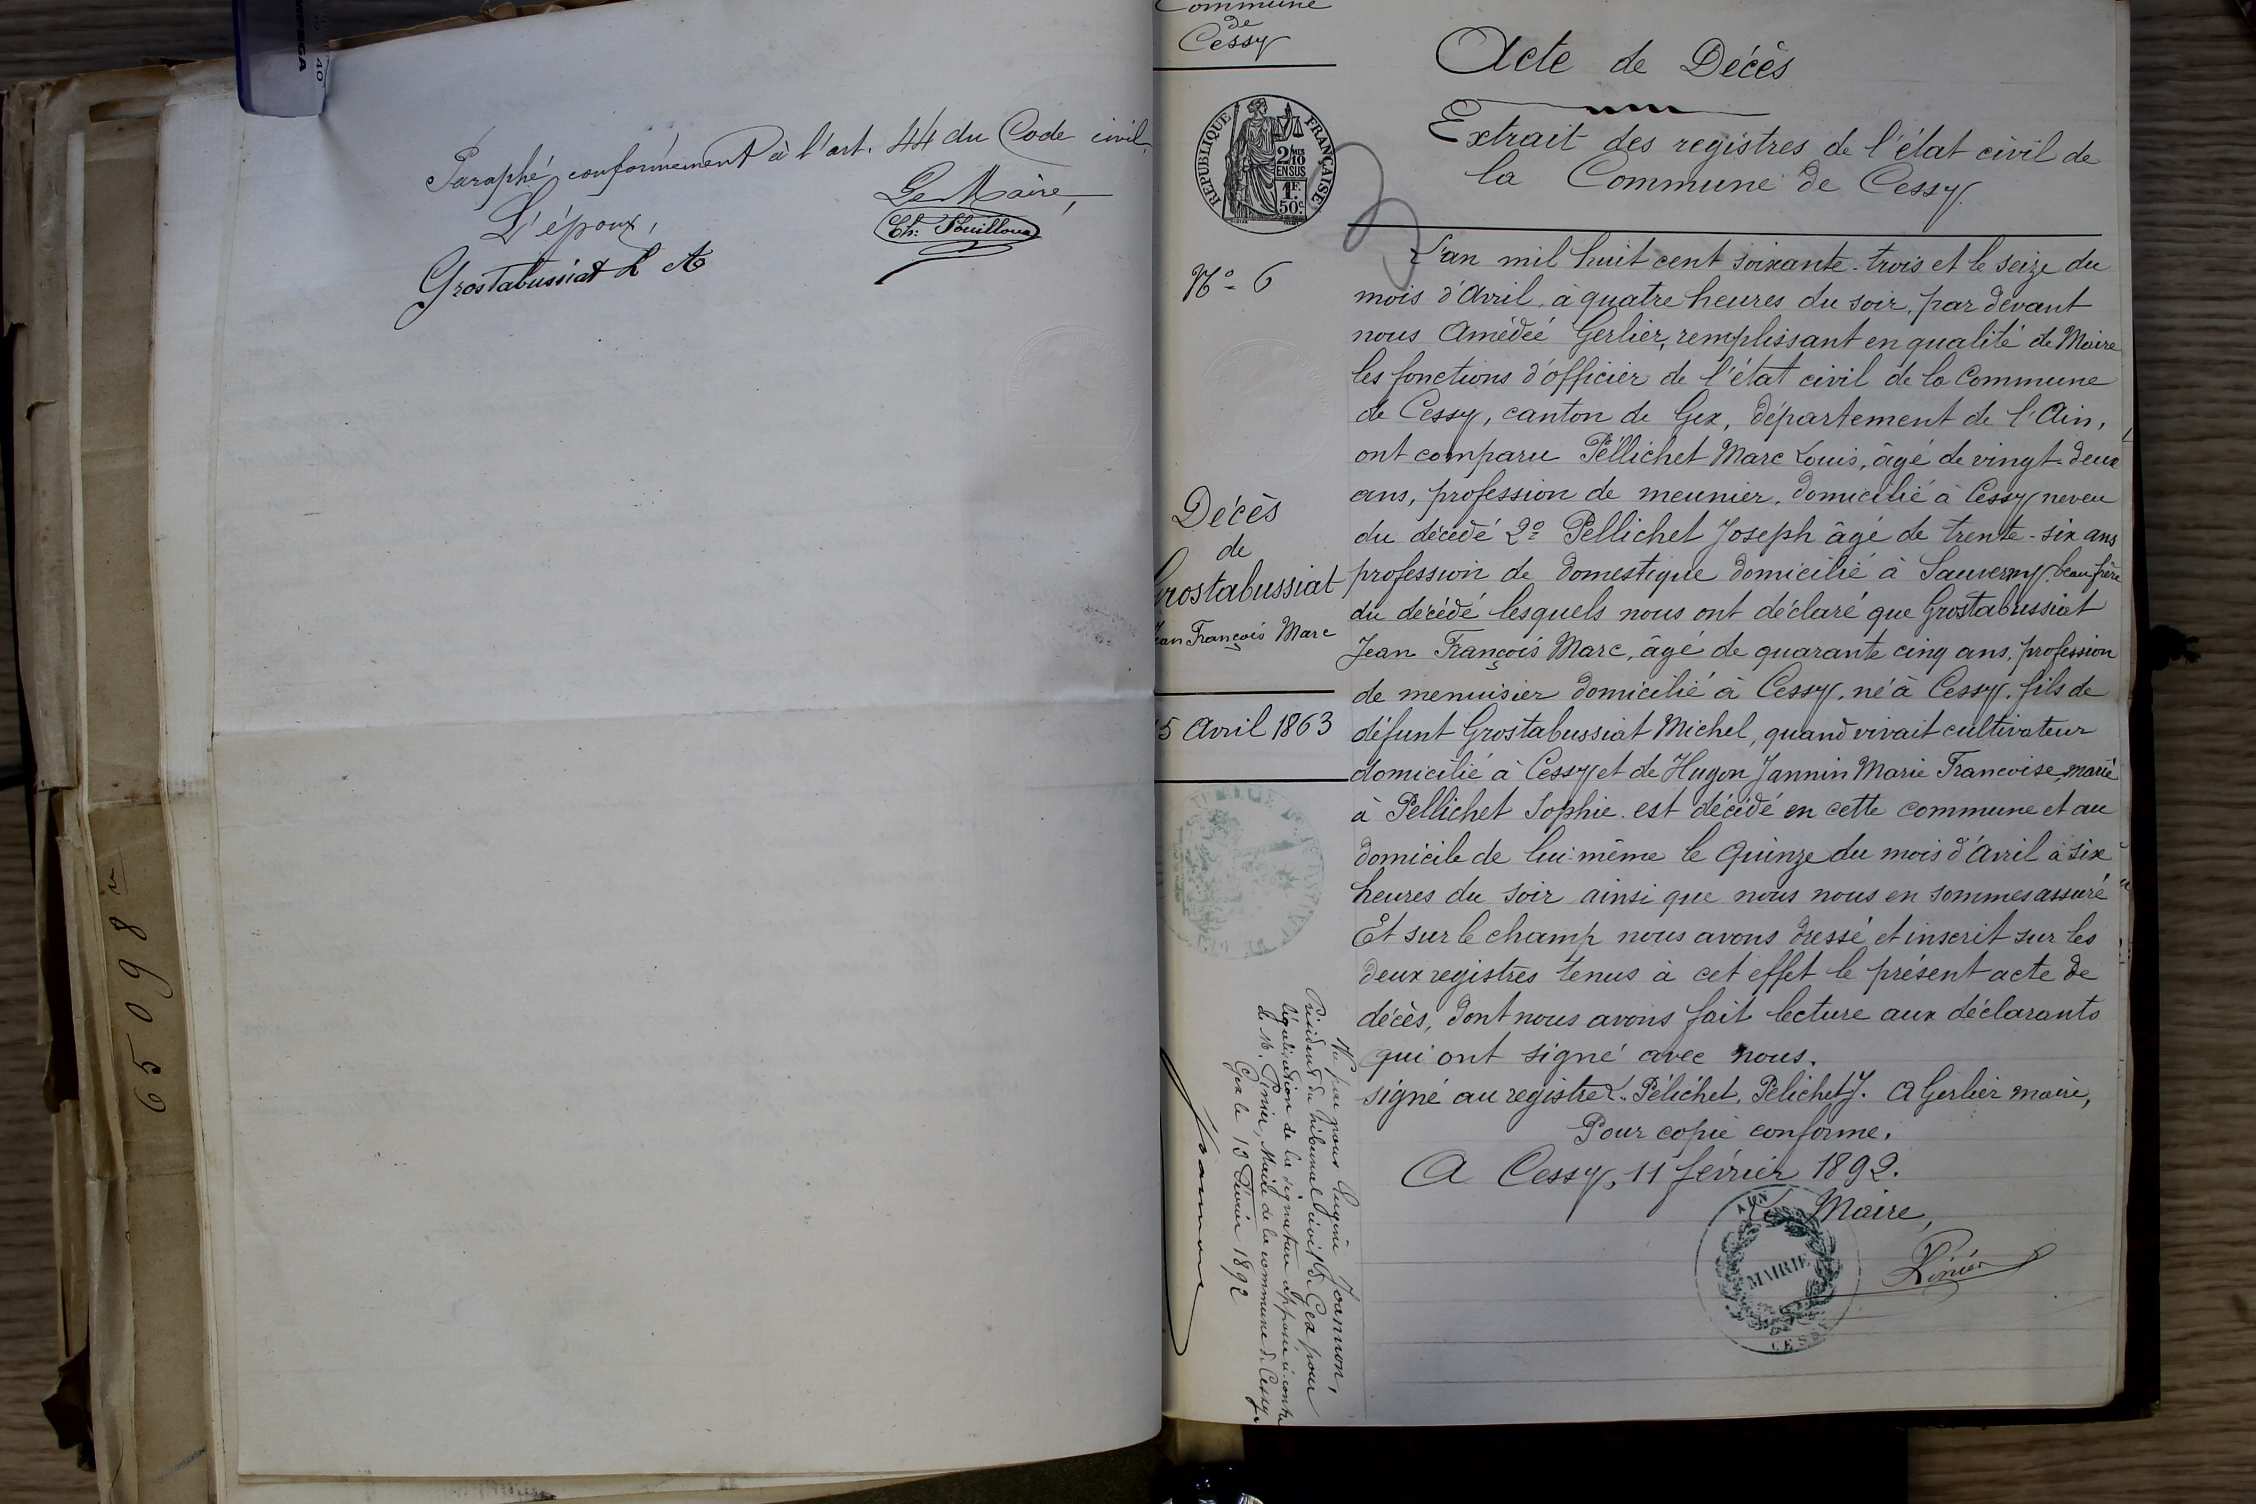 Paraphé conformément à l'art. 44 du Code civil.
L'époux,
Grostabussiat L A
Le Maire,
Ch: Fouilloux
65098
Commune
de
Cessy
RÉPUBLIQUE FRANÇAISE
2/10
EN SUS
1F.
50c
No 6
Décès
de
Grostabussiat
Jean François Marc
15 Avril 1863
Vu par nous Eugène Joannon,
Président du tribunal civil de Gex, pour
légalisation de la signature apposée ci-contre
de M. Périer, Maire de la commune de Cessy.
Gex le 13 Février 1892
Joannon
Acte de Décès
Extrait des registres de l'état civil de
la Commune de Cessy.
L'an mil huit cent soixante-trois et le seize du
mois d'Avril à quatre heures du soir, par devant
nous Amédée Gerlier, remplissant en qualité de Maire
les fonctions d'officier de l'état civil de la Commune
de Cessy, canton de Gex, département de l'Ain,
ont comparu Péllichet Marc Louis, âgé de vingt-deux
ans, profession de meunier, domicilié à Cessy neveu
du décédé 2º Pellichet Joseph âgé de trente-six ans
profession de domestique domicilié à Sauverny beau frère
du décédé lesquels nous ont déclaré que Grostabussiat
Jean François Marc, âgé de quarante cinq ans, profession
de menuisier domicilié à Cessy, né à Cessy, fils de
défunt Grostabussiat Michel, quand vivait cultivateur
domicilié à Cessy et de Hugon Jannin Marie Francoise, marié
à Pellichet Sophie est décédé en cette commune et au
domicile de lui-même le Quinze du mois d'Avril à six
heures du soir ainsi que nous nous en sommes assuré
Et sur le champ nous avons dressé et inscrit sur les
deux registres tenus à cet effet le présent acte de
décès, dont nous avons fait lecture aux déclarants
qui ont signé avec nous.
signé au registre L. Pélichet, Pélichet J. A Gerlier maire,
Pour copie conforme.
A Cessy, 11 février 1892.
Le Maire,
Périer
MAIRIE
CESSY
AIN